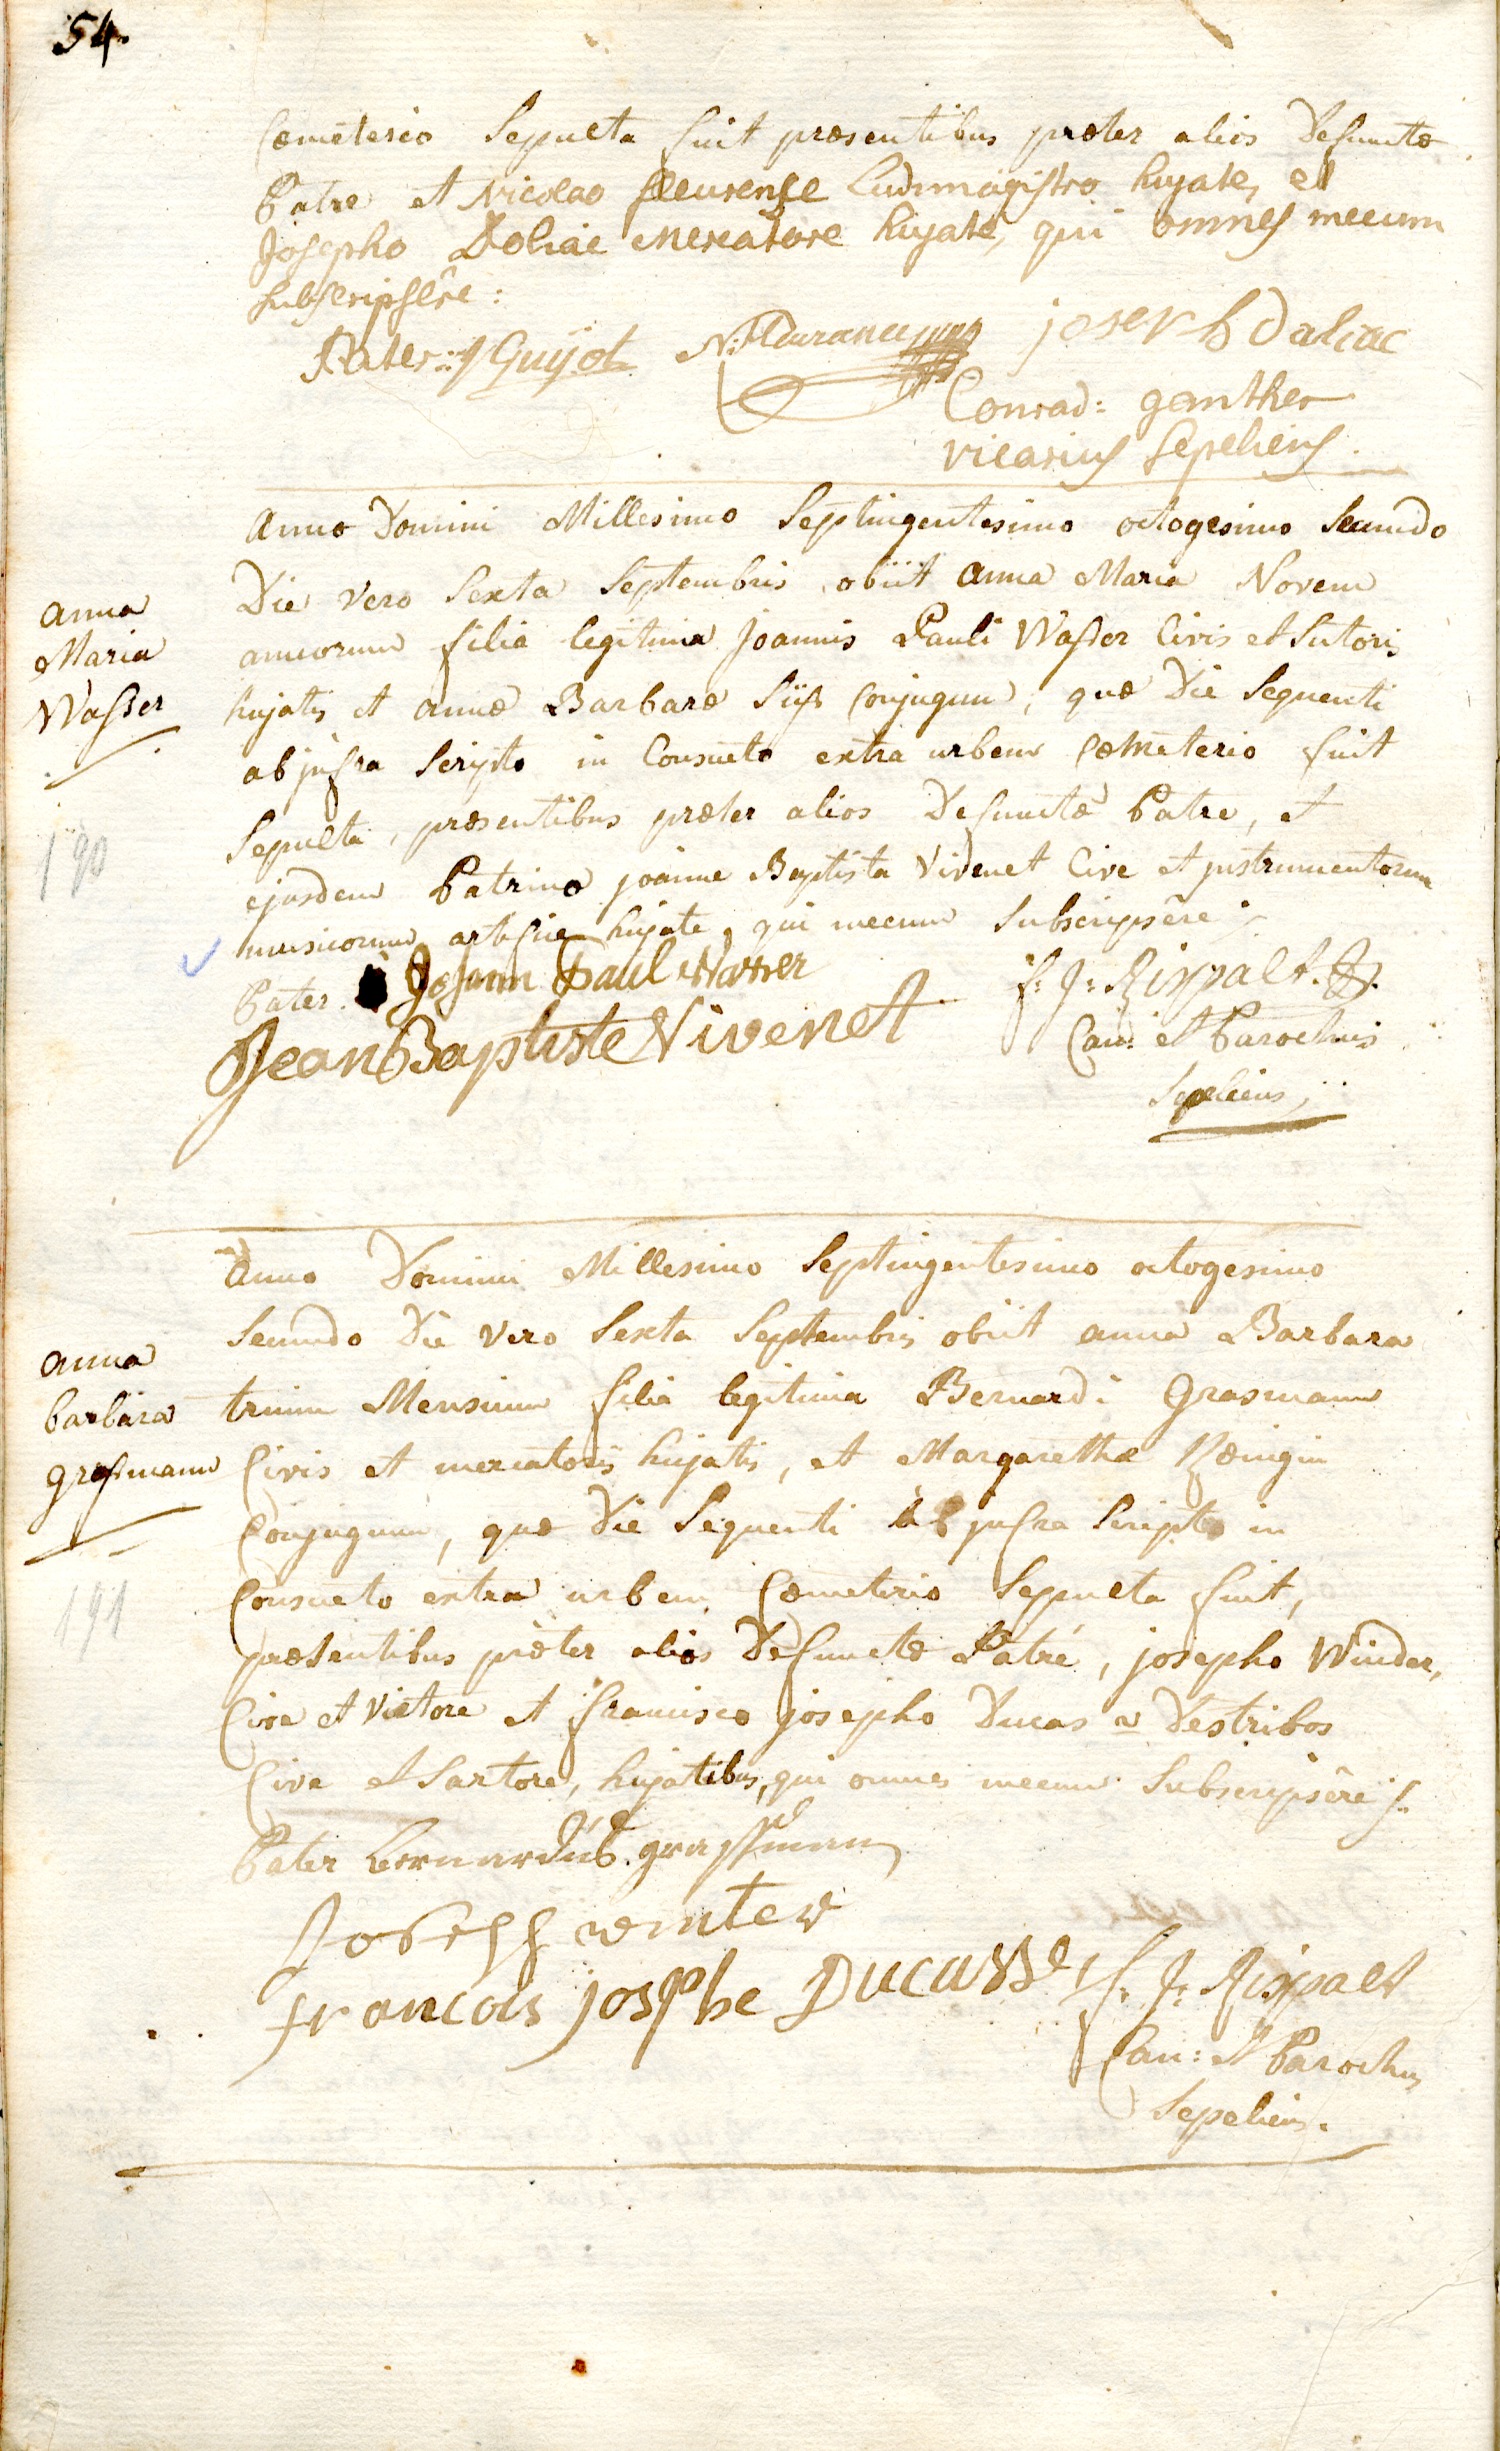 54.
Cœmeterio Sepulta fuit præsentibus præter alios Defunctæ
Patre et Nicolao fleurense Ludimagistro hujate, et
Josepho Doliac Mercatore hujate, qui omnes mecum
subscripsêre:
Pater: J Guijot
joseph Daliac
Conrad: ganther
vicarius sepeliens.
Anno Domini Millesimo Septingentesimo octogesimo Secundo
Die vero Sexta Septembris obiit Anna Maria Novem
anna
Maria
Wasser
annorum filia legitima Joannis Pauli Wasser Civis et Sutoris
hujatis et annæ Barbaræ Conjugum, quæ Die Sequenti
ab jnfra Scripto in Consueto extra urbem Cœmeterio fuit
Sepulta, præsentibus præter alios Defunctæ Patre, et
190
ejusdem Patrino joanne Baptista Vivenet Cive et jnstrumentorum
musicorum artifice hujate, qui mecum Subscripsêre
Pater Johann Paul Wasser
Jean Baptiste Vivenet
f: J: Rippalt.
Can: et Parochus
Sepeliens,
Anno Domini Millesimo Septingentesimo octogesimo
Secundo Die Vero Sexta Septembris obiit anna Barbara
anna
barbara
grasmann
trium Mensium filia legitima Bernardi Grasmann
Civis et mercatoris hujatis, et Margarethæ Kœnigin
Conjugum, quæ Die Sequenti ab jnfra Scripto in
Consueto extra urbem Cœmeterio Sepulta fuit,
191
præsentibus præter alios Defunctæ Patre, josepho Winder,
Cive et Vietore et francisco josepho Ducas Destribos
Cive et Sartore, hujatibus, qui omnes mecum Subscripsêre
Pater bernardus grassmann
Joseph winter
francois josephe Ducasse
f. J: Rippalt
Can: et Parochus
Sepeliens.